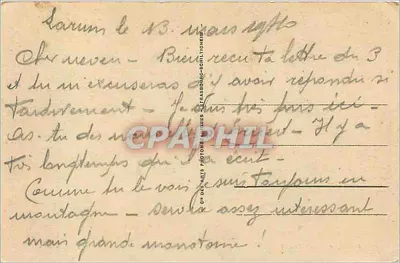 Laruns le 13 mars 1940
Cher neveu - Bien reçu ta lettre du 3
et tu m'excuseras d'y avoir répondu si
tardivement - Je suis très pris ici -
As-tu des
CPARAMA
- Il y a
très longtemps qu'il a écrit -
Comme tu le vois je suis toujours en
montagne - service assez intéressant
mais grande monotonie !